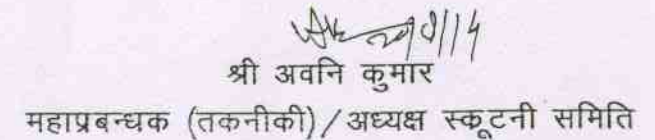 श्री अवनि कुमार
महाप्रबन्धक (तकनीकी)/अध्यक्ष स्कूटनी समिति